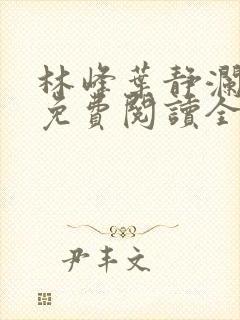 林峰葉靜瀾
免費閱讀全
尹丰文